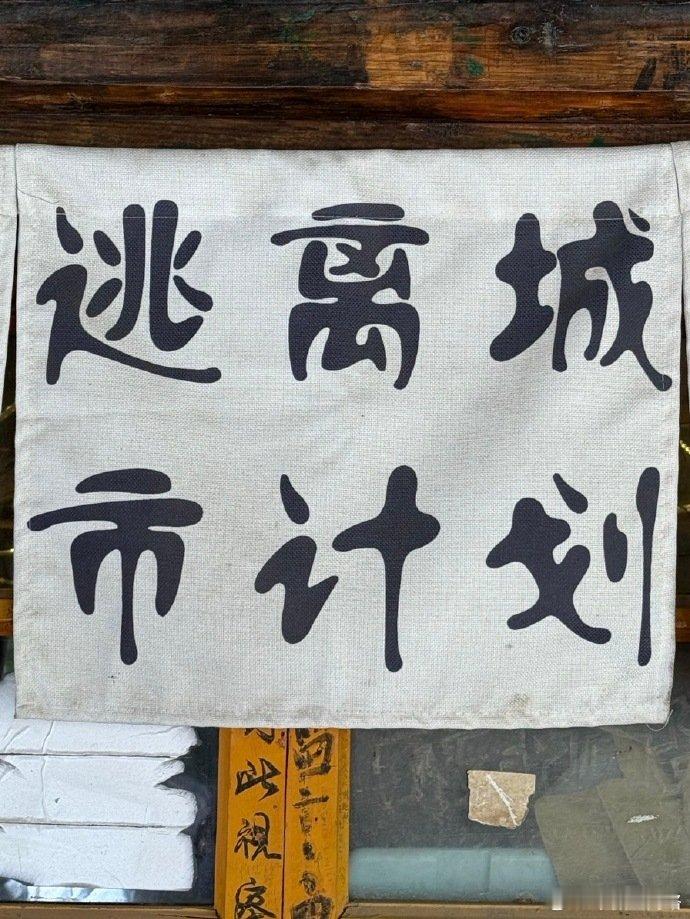 逃离城
市计划
此視客